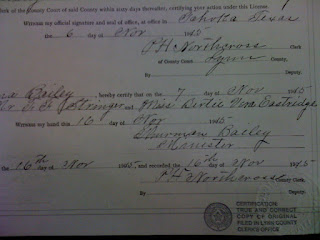 lerk of the County Court of said County within sixty days thereafter, certifying your action under this License.
Witness my official signature and seal of office, at office in Tahoka Texas
the 6 day of Nov 15
P H Northcross Clerk
of County Court, Lynn County
By Deputy
Bailey hereby certify that on the 7 day of Nov 15
Mr. E E Stringer and Miss Dirtie Vera Eastridge
Witness my hand this 10 day of Nov 1915
Thurmon Bailey
Minister
the 16th day of Nov 1915, and recorded the 16th day of Nov 1915
P H Northcross County Clerk,
By Deputy
CERTIFICATION:
TRUE AND CORRECT
COPY OF ORIGINAL
FILED IN LYNN COUNTY
CLERK'S OFFICE